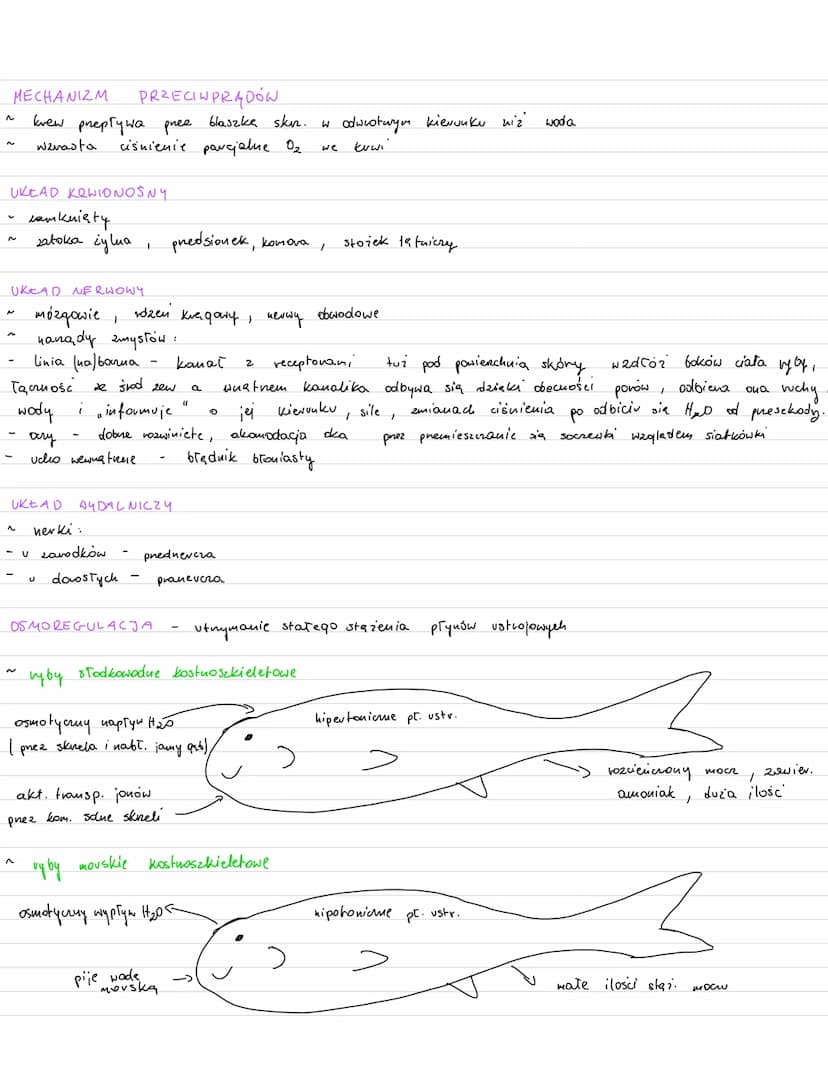 MECHANIZM PRZECIWPRĄDÓW
~ krew przepływa przez blaszkę skrz. w odwrotnym kierunku niż woda
~ wzrasta ciśnienie parcjalne O₂ we krwi
UKŁAD KRWIONOŚNY
~ zamknięty
~ zatoka żylna, przedsionek, komora, stożek tętniczy
UKŁAD NERWOWY
~ mózgowie, rdzeń kręgowy, nerwy obwodowe
~ narządy zmysłów:
- linia (na)boczna - kanał z receptorami tuż pod powierzchnią skóry wzdłóż boków ciała ryby,
łączność ze środ zew a wnętrzem kanalika odbywa się dzięki obecności porów, odbiera ona ruchy
wody i „informuje" o jej kierunku, sile, zmianach ciśnienia po odbiciu się H₂O od przeszkody.
- oczy - dobrze rozwinięte, akomodacja oka przez przemieszczanie się soczewki względem siatkówki
- ucho wewnętrzne - błędnik błoniasty
UKŁAD WYDALNICZY
~ nerki:
- u zarodków - przednercza
- u dorosłych - pranercza
OSMOREGULACJA - utrzymanie stałego stężenia płynów ustrojowych
~ ryby słodkowodne kostnoszkieletowe
osmotyczny napływ H₂O
(przez skrzela i nabł. jamy gęb)
hipertoniczne pł. ustr.
rozcieńczony mocz, zawier.
amoniak, duża ilość
akt. transp. jonów
przez kom. solne skrzeli
~ ryby morskie kostnoszkieletowe
osmotyczny wypływ H₂O
hipotoniczne pł. ustr.
pije wodę
morską
małe ilości stęż. moczu